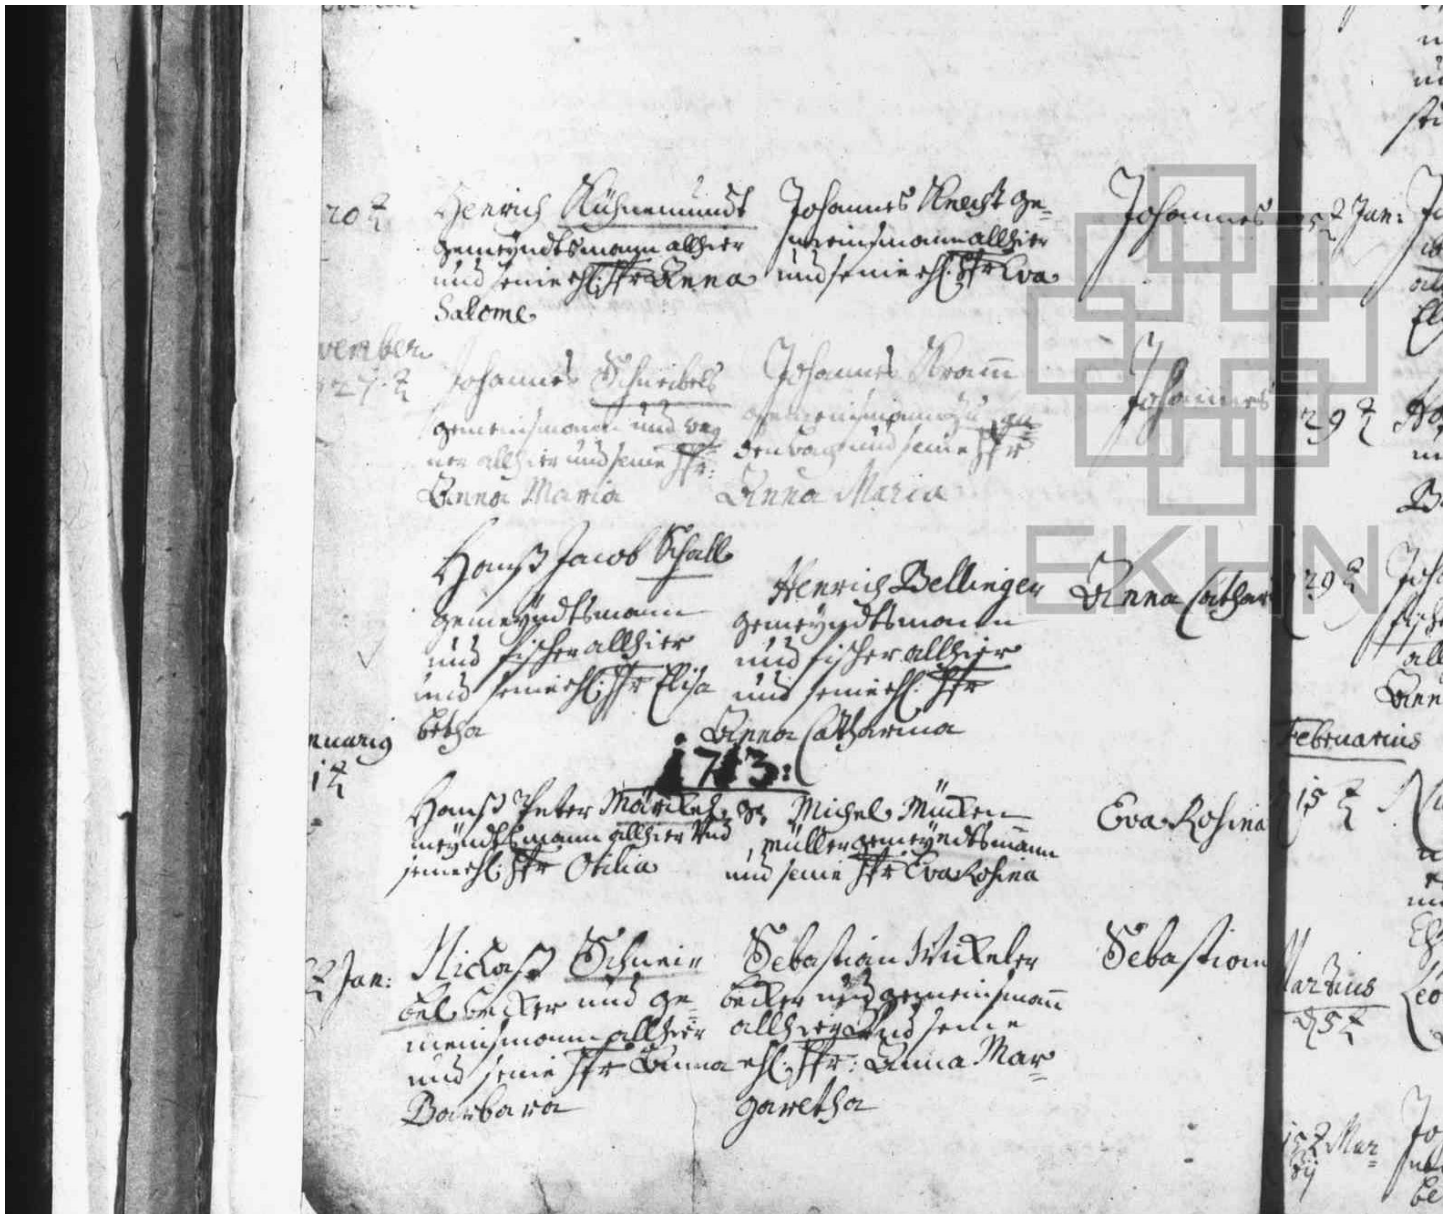 20
Henrich Kühnemundt
gemeyndtsmann allhier
und seine ehl: Hfr Anna
Salome
Johannes Knecht ge-
meinsmann allhier
und seine ehl: Hfr Eva
Johannes
vember
27.
Johannes Schneibels
gemeinsmann und
ner allhier und seine Hfr:
Anna Maria
Johannes Kram̄
gemeinsmann zu
und seine Hfr
Anna Maria
Johannes
Hanß Jacob Schall
gemeyndtsmann
und fischer allhier
und seine ehl: Hfr Elisa
betha
Henrich Bellinger
gemeyndtsmann
und fischer allhier
und seine ehl: Hfr
Anna Catharina
Anna Cathar
1713:
nuarig
1
Hanß Peter Märckel, ge
meyndtsmann allhier und
seine ehl: Hfr Otilia
Michel Mücken
müller gemeyndtsmann
und seine Hfr Eva Rosina
Eva Rosina
Jan:
Niclaß Schnei
bel becker und ge-
meinsmann allhier
und seine Hfr Anna
Barbara
Sebastian Wickeler
becker und gemeinsman̄
allhier und seine
ehl: Hfr: Anna Mar-
garetha
Sebastian
25 Jan:
29
29
Februarius
15
Martius
25
15 Mar-
tij
EKHN